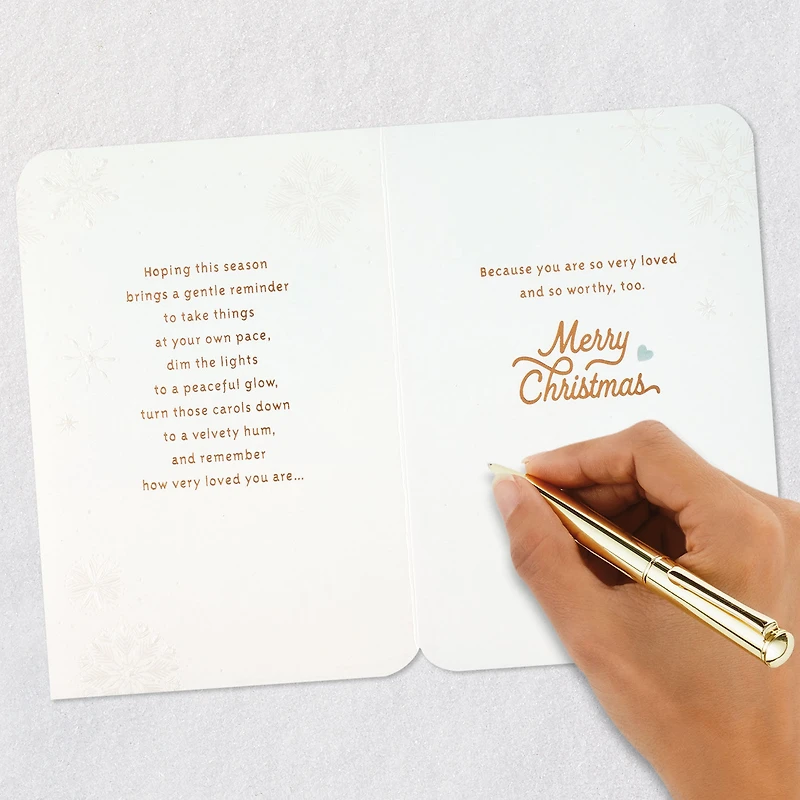 Hoping this season
brings a gentle reminder
to take things
at your own pace,
dim the lights
to a peaceful glow,
turn those carols down
to a velvety hum,
and remember
how very loved you are...
Because you are so very loved
and so worthy, too.
Merry
Christmas